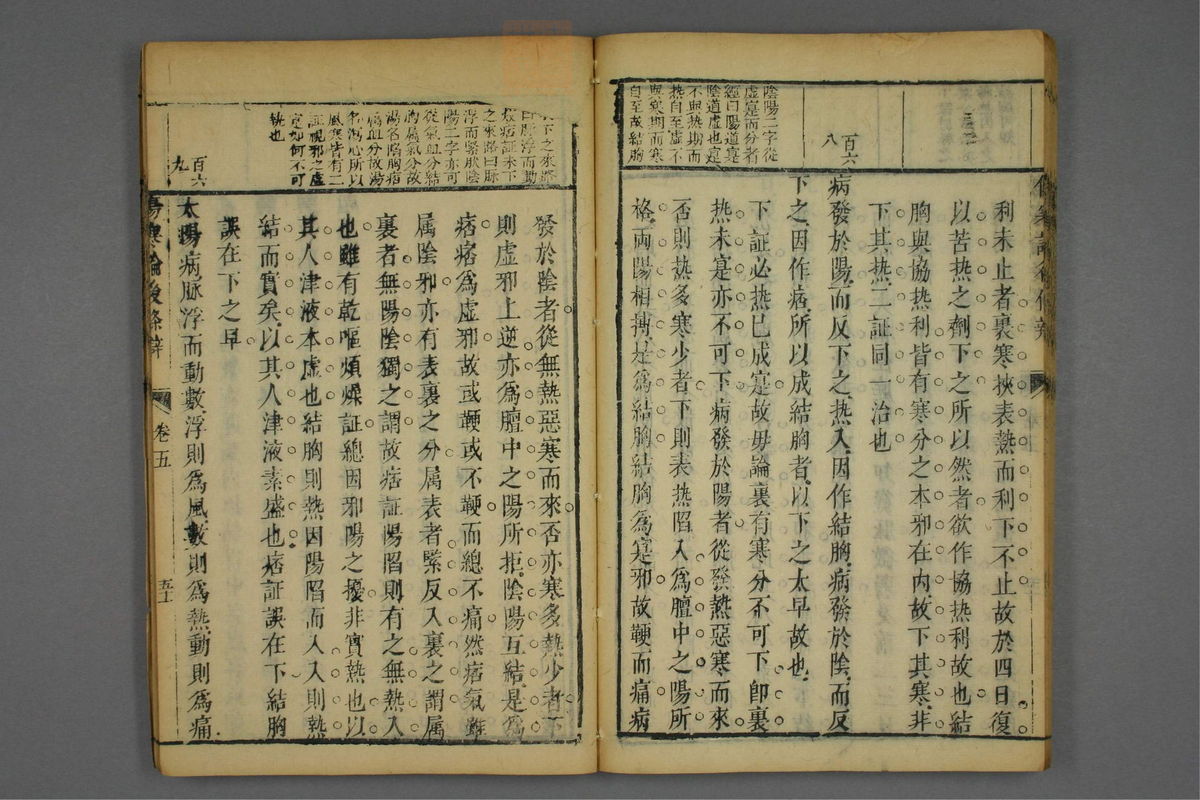 利未止者裏寒挾表熱而利下不止故於四日復
以苦熱之劑下之所以然者欲作協热利故也結
胸與協热利皆有寒分之本邪在内故下其寒非
下其热二証同一治也
百六
八
病發於陽而反下之热入因作結胸病發於陰而反
下之因作痞所以成結胸者以下之太早故也
下証必热已成寔故毋論裏有寒分不可下即裏
热未寔亦不可下病發於陽者從發熱惡寒而來
否則热多寒少者下則表热陷入爲膻中之陽所
格両陽相摶是爲結胸結胸爲寔邪故鞕而痛病
陰陽二字從
虛寔而分者
經曰陽道寔
陰道虛也寔
不與热期而
热自至虛不
與寒期而寒
自至故結胸
發於陰者從無熱惡寒而來否亦寒多熱少者下
則虛邪上逆亦爲膻中之陽所拒陰陽互結是爲
痞痞爲虛邪故或鞕或不鞕而總不痛然痞氣雖
属陰邪亦有表裏之分属表者緊反入裏之謂属
裏者無陽陰獨之謂故痞証陽陷則有之無熱入
也雖有乾嘔煩燥証總因邪陽之擾非實熱也以
其人津液本虛也結胸則熱因陽陷而入入則熱
結而實矣以其人津液素盛也痞証誤在下結胸
誤在下之早
之來路曰脉
浮而緊然陰
陽二字亦可
從氣血分結
胸属氣分故
湯名陷胸痞
属血分故湯
名瀉心所以
風寒皆有二
証視邪之虛
寔如何不可
執也
百六
九
太陽病脉浮而動數浮則爲風數則爲熱動則爲痛
傷寒論後條辨
卷五
五十